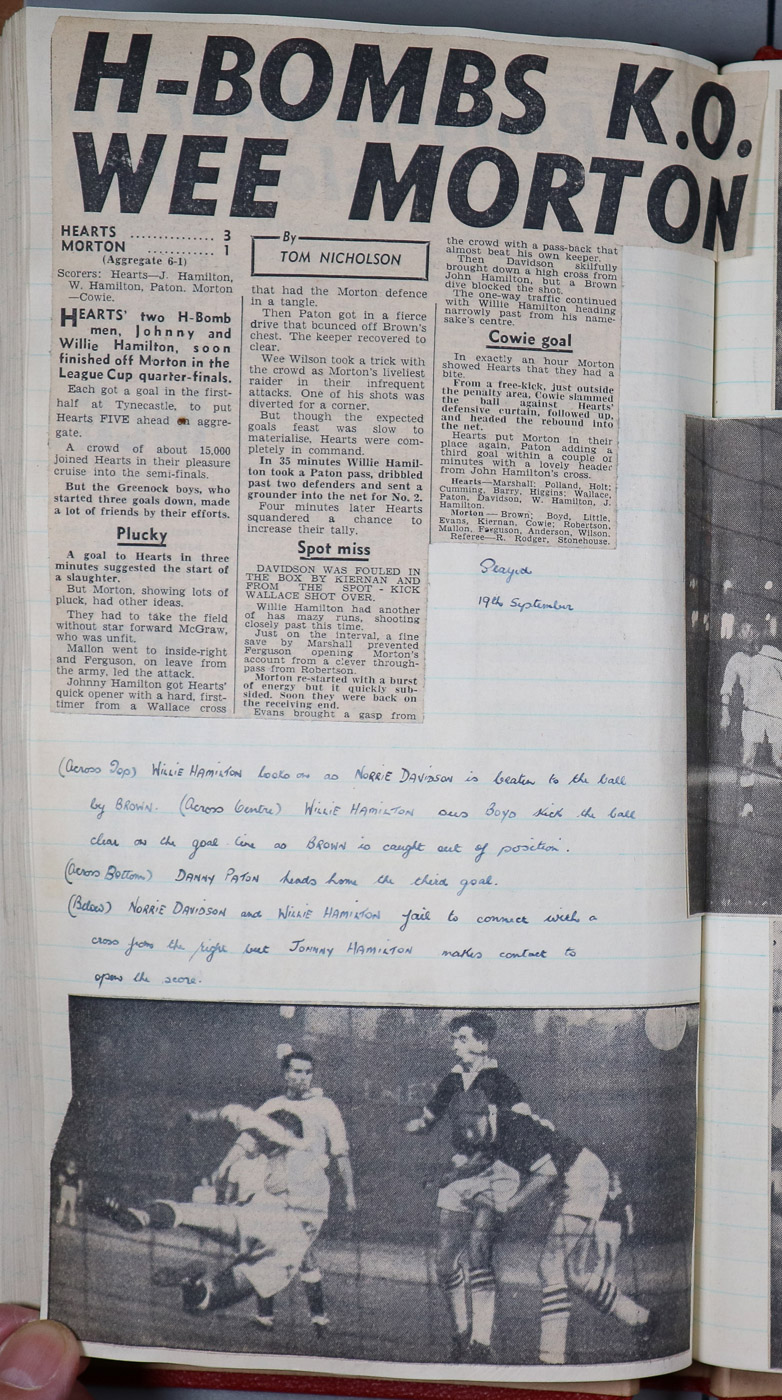 H-BOMBS K.O.
WEE MORTON
HEARTS .............. 3
MORTON ........... 1
(Aggregate 6-1)
Scorers: Hearts—J. Hamilton,
W. Hamilton, Paton. Morton
—Cowie.
HEARTS' two H-Bomb
men, Johnny and
Willie Hamilton, soon
finished off Morton in the
League Cup quarter-finals.
Each got a goal in the first-
half at Tynecastle, to put
Hearts FIVE ahead on aggre-
gate.
A crowd of about 15,000
joined Hearts in their pleasure
cruise into the semi-finals.
But the Greenock boys, who
started three goals down, made
a lot of friends by their efforts.
Plucky
A goal to Hearts in three
minutes suggested the start of
a slaughter.
But Morton, showing lots of
pluck, had other ideas.
They had to take the field
without star forward McGraw,
who was unfit.
Mallon went to inside-right
and Ferguson, on leave from
the army, led the attack.
Johnny Hamilton got Hearts'
quick opener with a hard, first-
timer from a Wallace cross
By
TOM NICHOLSON
that had the Morton defence
in a tangle.
Then Paton got in a fierce
drive that bounced off Brown's
chest. The keeper recovered to
clear.
Wee Wilson took a trick with
the crowd as Morton's liveliest
raider in their infrequent
attacks. One of his shots was
diverted for a corner.
But though the expected
goals feast was slow to
materialise, Hearts were com-
pletely in command.
In 35 minutes Willie Hamil-
ton took a Paton pass, dribbled
past two defenders and sent a
grounder into the net for No. 2.
Four minutes later Hearts
squandered a chance to
increase their tally.
Spot miss
DAVIDSON WAS FOULED IN
THE BOX BY KIERNAN AND
FROM THE SPOT - KICK
WALLACE SHOT OVER.
Willie Hamilton had another
of has mazy runs, shooting
closely past this time.
Just on the interval, a fine
save by Marshall prevented
Ferguson opening Morton's
account from a clever through-
pass from Robertson.
Morton re-started with a burst
of energy but it quickly sub-
sided. Soon they were back on
the receiving end.
Evans brought a gasp from
the crowd with a pass-back that
almost beat his own keeper.
Then Davidson skilfully
brought down a high cross from
John Hamilton, but a Brown
dive blocked the shot.
The one-way traffic continued
with Willie Hamilton heading
narrowly past from his name-
sake's centre.
Cowie goal
In exactly an hour Morton
showed Hearts that they had a
bite.
From a free-kick, just outside
the penalty area, Cowie slammed
the ball against Hearts'
defensive curtain, followed up,
and headed the rebound into
the net.
Hearts put Morton in their
place again, Paton adding a
third goal within a couple of
minutes with a lovely header
from John Hamilton's cross.
Hearts—Marshall; Polland, Holt;
Cumming, Barry, Higgins; Wallace,
Paton, Davidson, W. Hamilton, J.
Hamilton.
Morton — Brown; Boyd, Little,
Evans, Kiernan, Cowie; Robertson,
Mallon, Ferguson, Anderson, Wilson.
Referee—R. Rodger, Stonehouse.
Played
19th September
(Across Top) WILLIE HAMILTON looks on as NORRIE DAVIDSON is beaten to the ball
by BROWN. (Across Centre) WILLIE HAMILTON sees BOYD kick the ball
clear on the goal line as BROWN is caught out of position.
(Across Bottom) DANNY PATON heads home the third goal.
(Below) NORRIE DAVIDSON and WILLIE HAMILTON fail to connect with a
cross from the right but JOHNNY HAMILTON makes contact to
open the score.